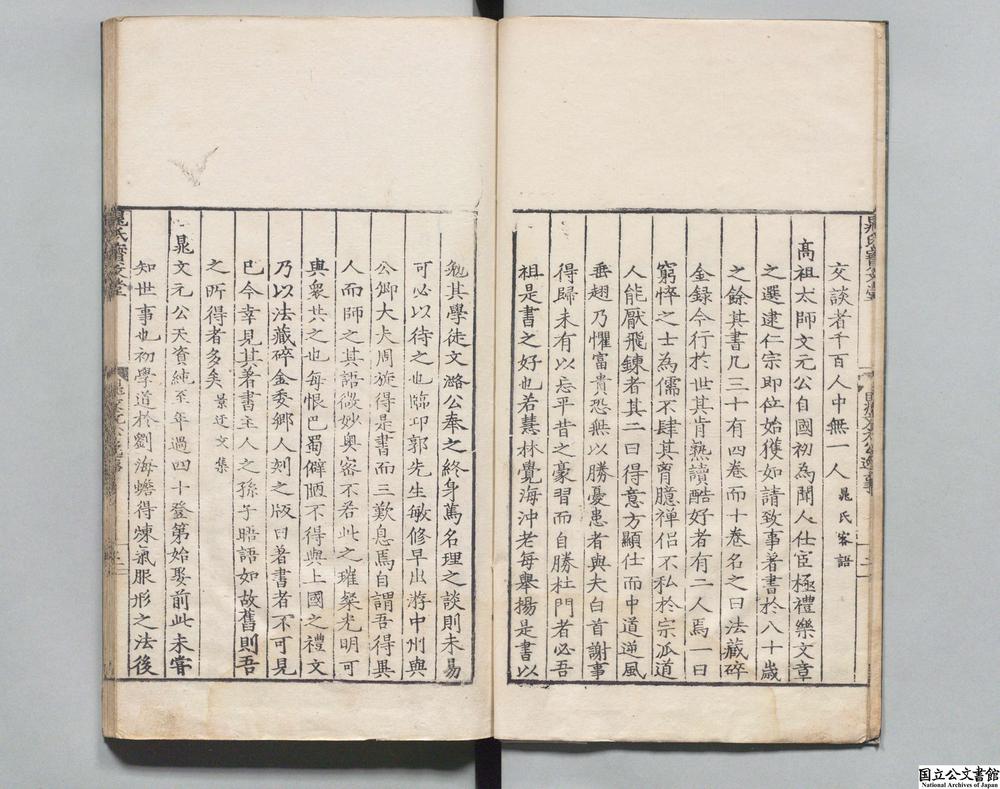 交談者千百人中無一人 晁氏客語
高祖太師文元公自國初為聞人仕宦極禮樂文章
之選逮仁宗即位始獲如請致事著書於八十歲
之餘其書凡三十有四卷而十卷名之曰法藏碎
金錄今行於世其肯熟讀酷好者有二人焉一曰
窮悴之士為儒不肆其胷臆禪侶不私於宗派道
人能厭飛鍊者其二曰得意方顯仕而中道逆風
垂翅乃懼富貴恐無以勝憂患者與夫白首謝事
得歸未有以忘平昔之豪習而自勝杜門者必吾
祖是書之好也若慧林覺海沖老每舉揚是書以
勉其學徒文潞公奉之終身篤名理之談則未易
可必以待之也臨邛郭先生敏修早出游中州與
公卿大夫周旋得是書而三歎息焉自謂吾得異
人而師之其語微妙奧密不若此之璀粲光明可
與衆共之也每恨巴蜀僻陋不得與上國之禮文
乃以法藏碎金委鄉人刻之版曰著書者不可見
已今幸見其著書主人之孫子晤語如故舊則吾
之所得者多矣 景迂文集
晁文元公天資純至年過四十登第始娶前此未甞
知世事也初學道於劉海蟾得煉氣服形之法後
晁氏寶文堂
國立公文書館
National Archives of Japan